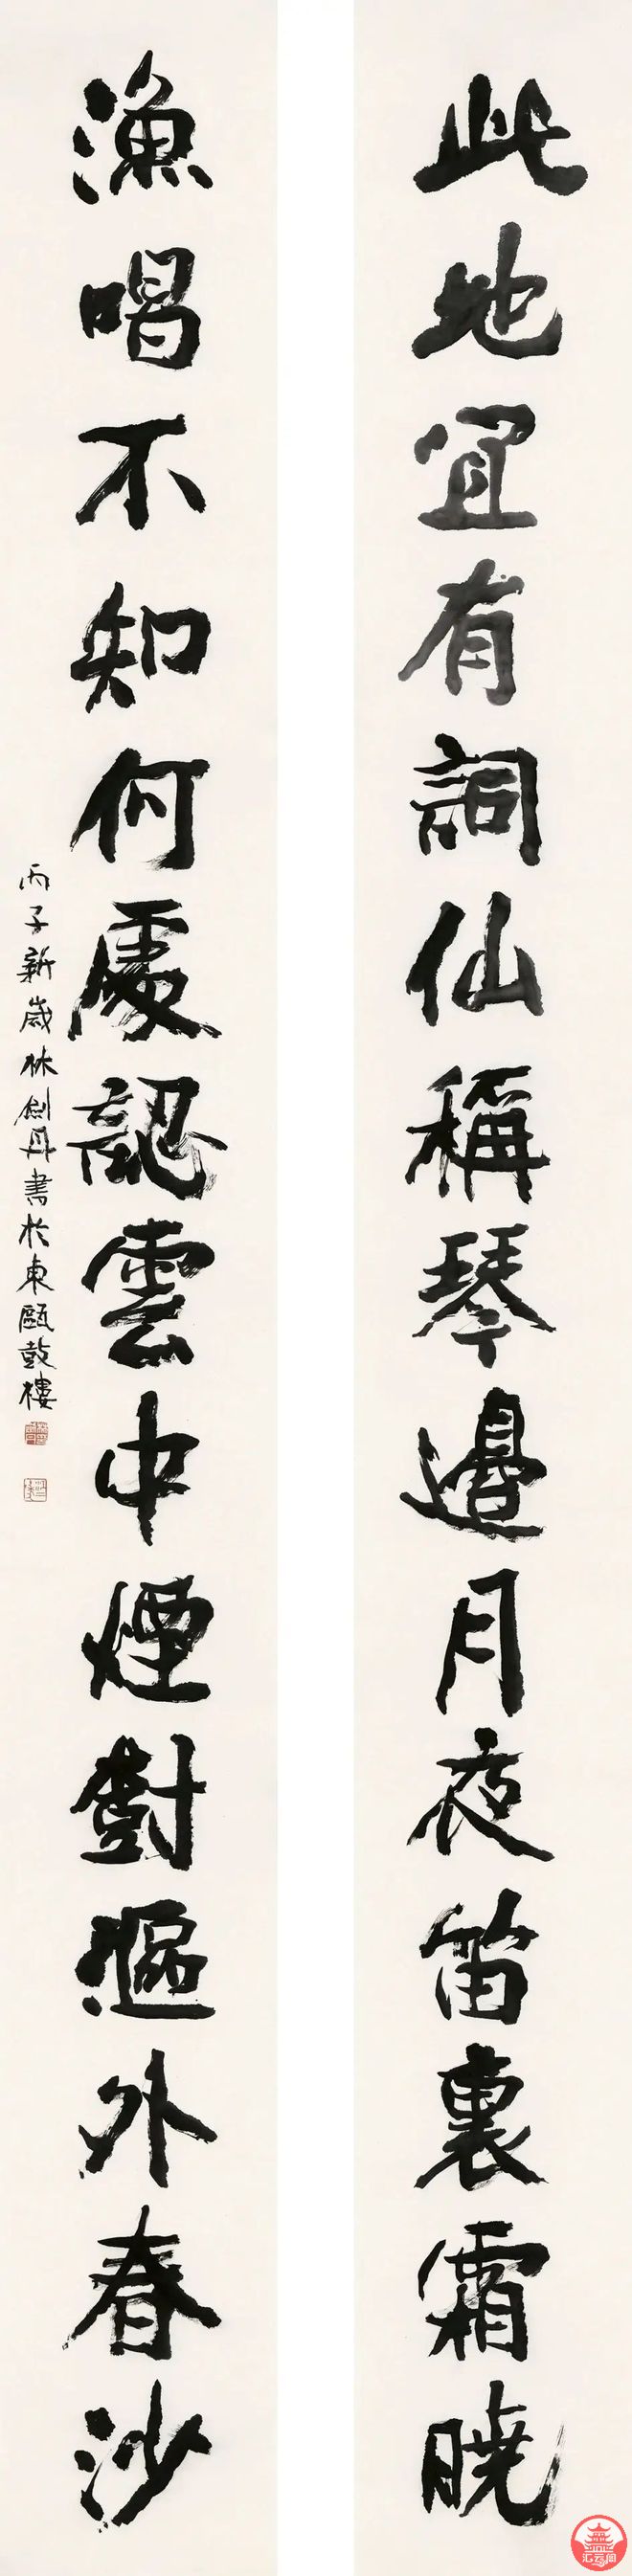 此地宜有詞仙稱琴邊月夜笛裏霜曉
漁唱不知何處認雲中煙樹漚外春沙
丙子新歲林劍丹書於東甌鼓樓
汇云阁